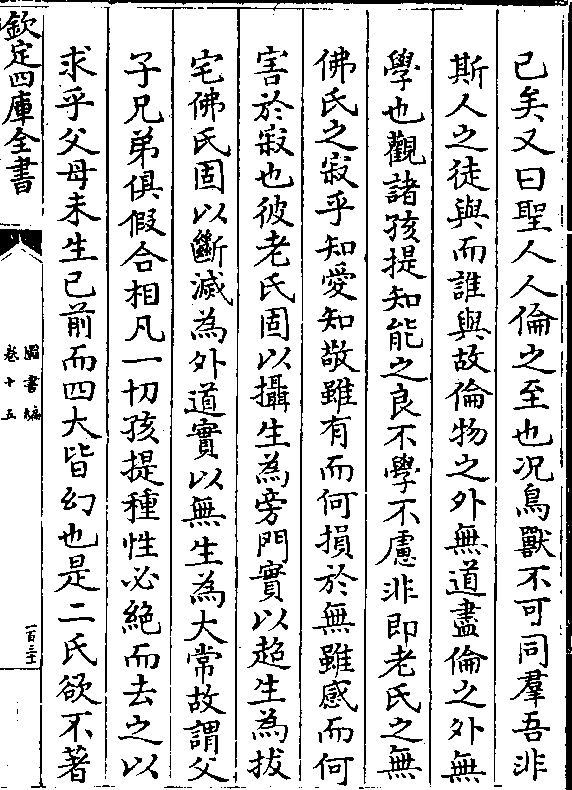 己矣又曰聖人人倫之至也况鳥獸不可同羣吾非
斯人之徒與而誰與故倫物之外無道盡倫之外無
學也觀諸孩提知能之良不學不慮非即老氏之無
佛氏之寂乎知愛知敬雖有而何損於無雖感而何
害於寂也彼老氏固以攝生為旁門實以超生為拔
宅佛氏固以斷滅為外道實以無生為大常故謂父
子兄弟俱假合相凡一切孩提種性必絶而去之以
求乎父母未生已前而四大皆幻也是二氏欲不著
欽定四庫全書
圖書編
卷十五